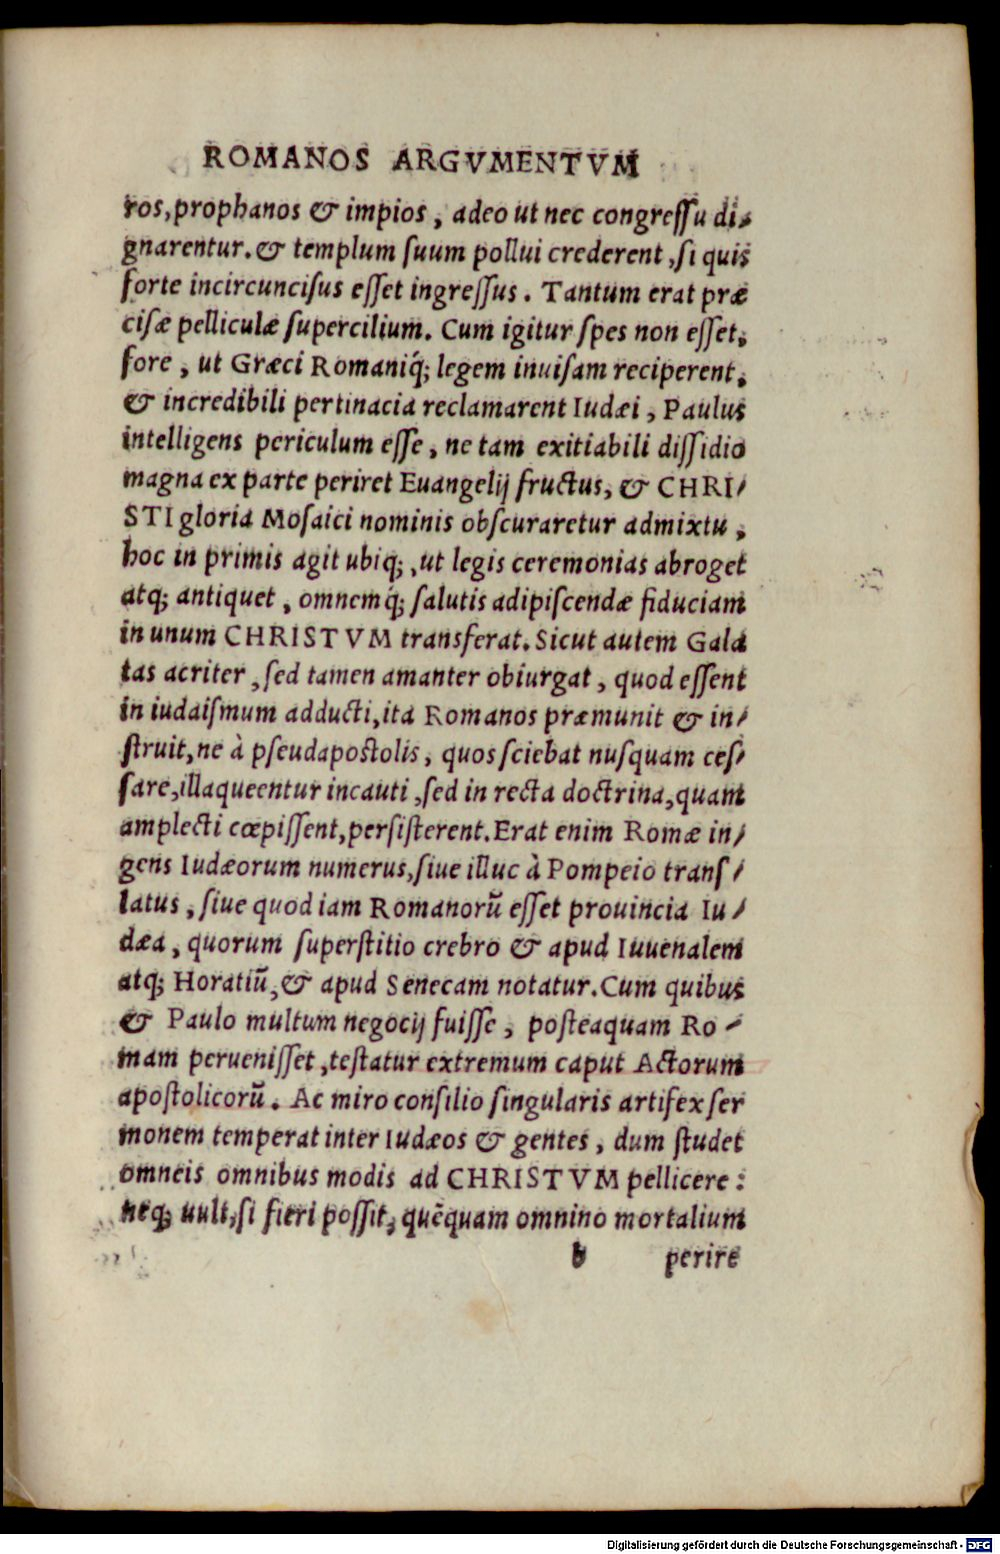 ROMANOS ARGVMENTVM
ros, prophanos & impios, adeo ut nec congreſſu di⸗
gnarentur. & templum ſuum pollui crederent, ſi quis
forte incircunciſus eſſet ingreſſus. Tantum erat præ
ciſæ pelliculæ ſupercilium. Cum igitur ſpes non eſſet,
fore, ut Græci Romaniq́; legem inuiſam reciperent,
& incredibili pertinacia reclamarent Iudæi, Paulus
intelligens periculum eſſe, ne tam exitiabili diſſidio
magna ex parte periret Euangelij fructus, & CHRI⸗
STI gloria Moſaici nominis obſcuraretur admixtu,
hoc in primis agit ubiq;, ut legis ceremonias abroget
atq; antiquet, omnemq́; ſalutis adipiſcendæ fiduciam
in unum CHRISTVM transferat. Sicut autem Gala
tas acriter, ſed tamen amanter obiurgat, quod eſſent
in iudaiſmum adducti, ita Romanos præmunit & in⸗
ſtruit, ne à pſeudapoſtolis, quos ſciebat nuſquam ceſ⸗
ſare, illaqueentur incauti, ſed in recta doctrina, quam
amplecti cœpiſſent, perſiſterent. Erat enim Romæ in⸗
gens Iudæorum numerus, ſiue illuc à Pompeio tranſ⸗
latus, ſiue quod iam Romanorũ eſſet prouincia Iu⸗
dæa, quorum ſuperſtitio crebro & apud Iuuenalem
atq; Horatiũ, & apud Senecam notatur. Cum quibus
& Paulo multum negocij fuiſſe, poſteaquam Ro⸗
mam perueniſſet, teſtatur extremum caput Actorum
apoſtolicorũ. Ac miro conſilio ſingularis artifex ſer
monem temperat inter Iudæos & gentes, dum ſtudet
omneis omnibus modis ad CHRISTVM pellicere:
neq; uult, ſi fieri poſſit, quẽquam omnino mortalium
b perire
Digitalisierung gefördert durch die Deutsche Forschungsgemeinschaft - DFG